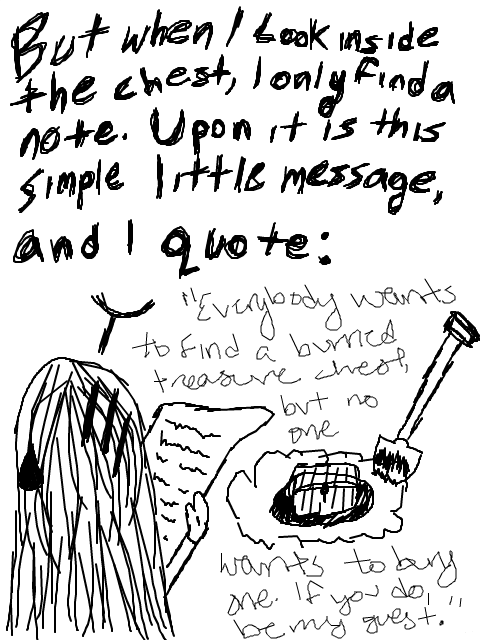 But when I look inside
the chest, I only find a
note. Upon it is this
simple little message,
and I quote:
"Everybody wants
to find a burried
treasure chest,
but no
one
wants to bury
one. If you do,
be my guest."